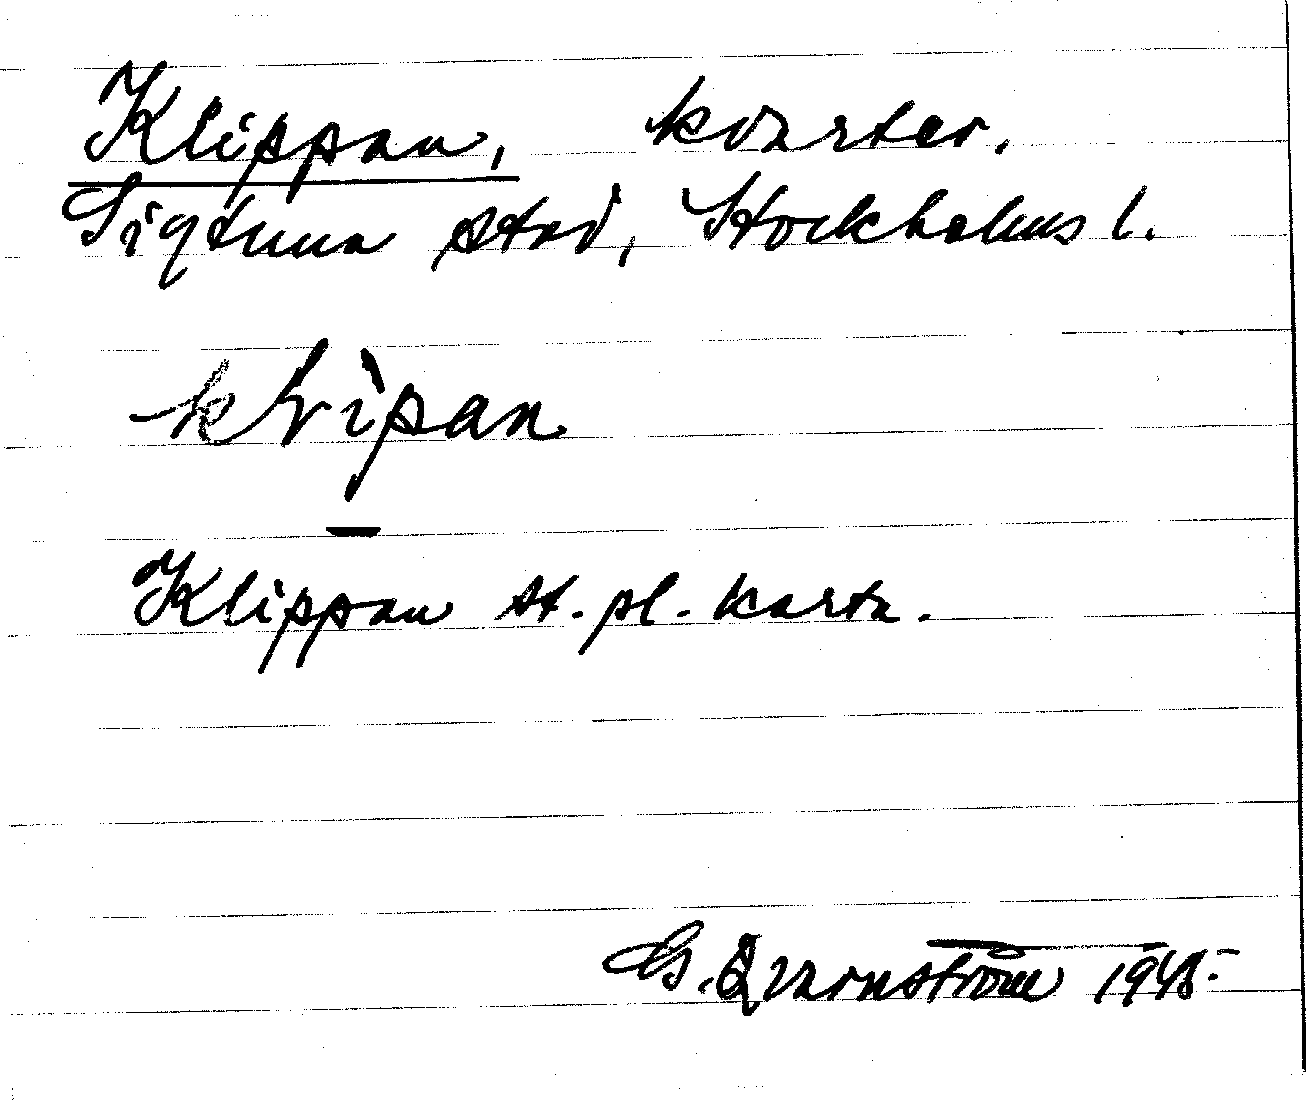 Klippan, kvarter.
Sigtuna stad, Stockholms l.
Klippan st. pl. karta.
G. Qvarnström 1948.